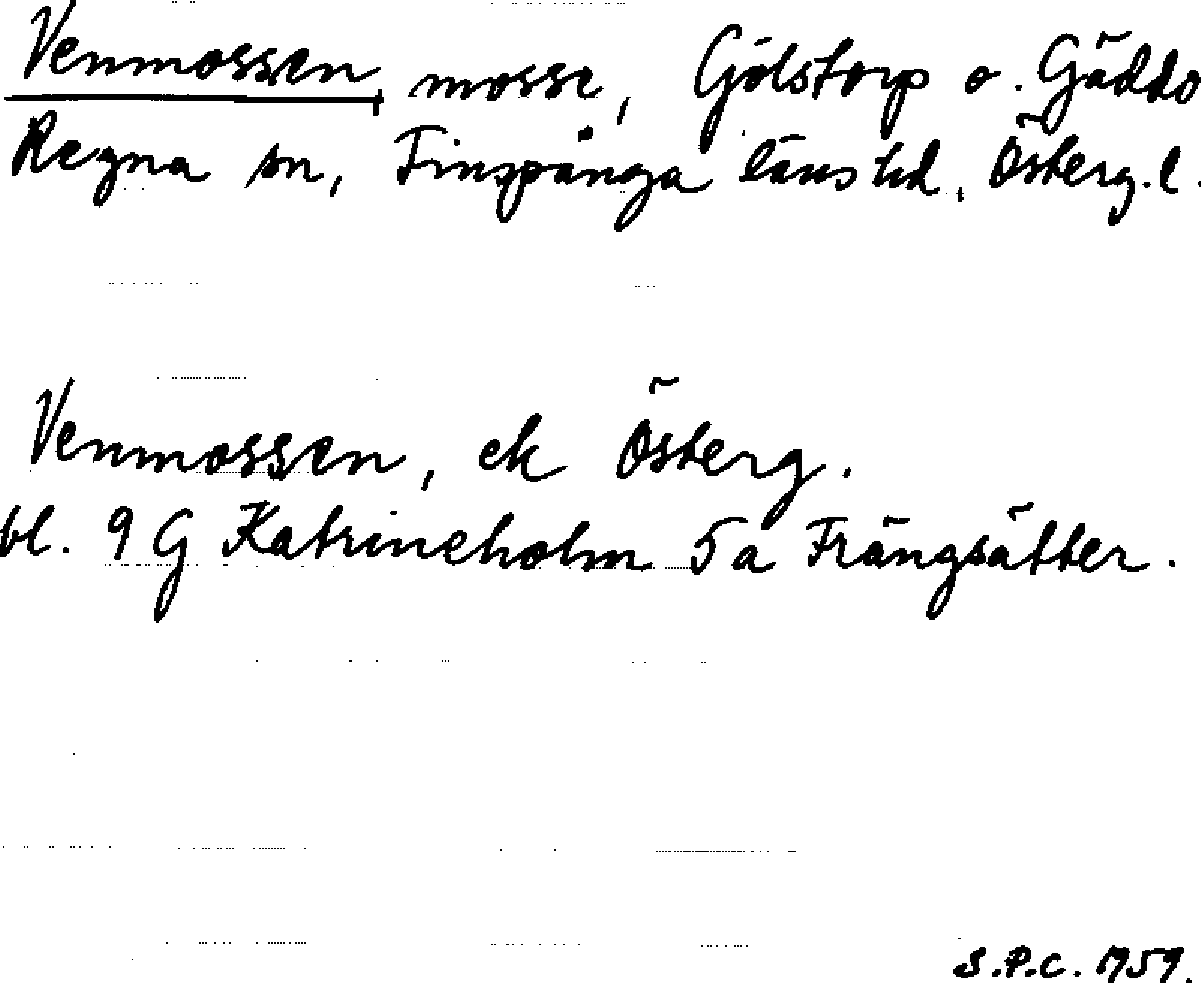 Venmossen, mosse, Gölstorp o. Gäddo
Regna sn, Finspånga läns hd, Österg.l.
Venmossen, ek Österg.
bl. 9 G Katrineholm 5a Frängsätter.
S.P.C. 1959.